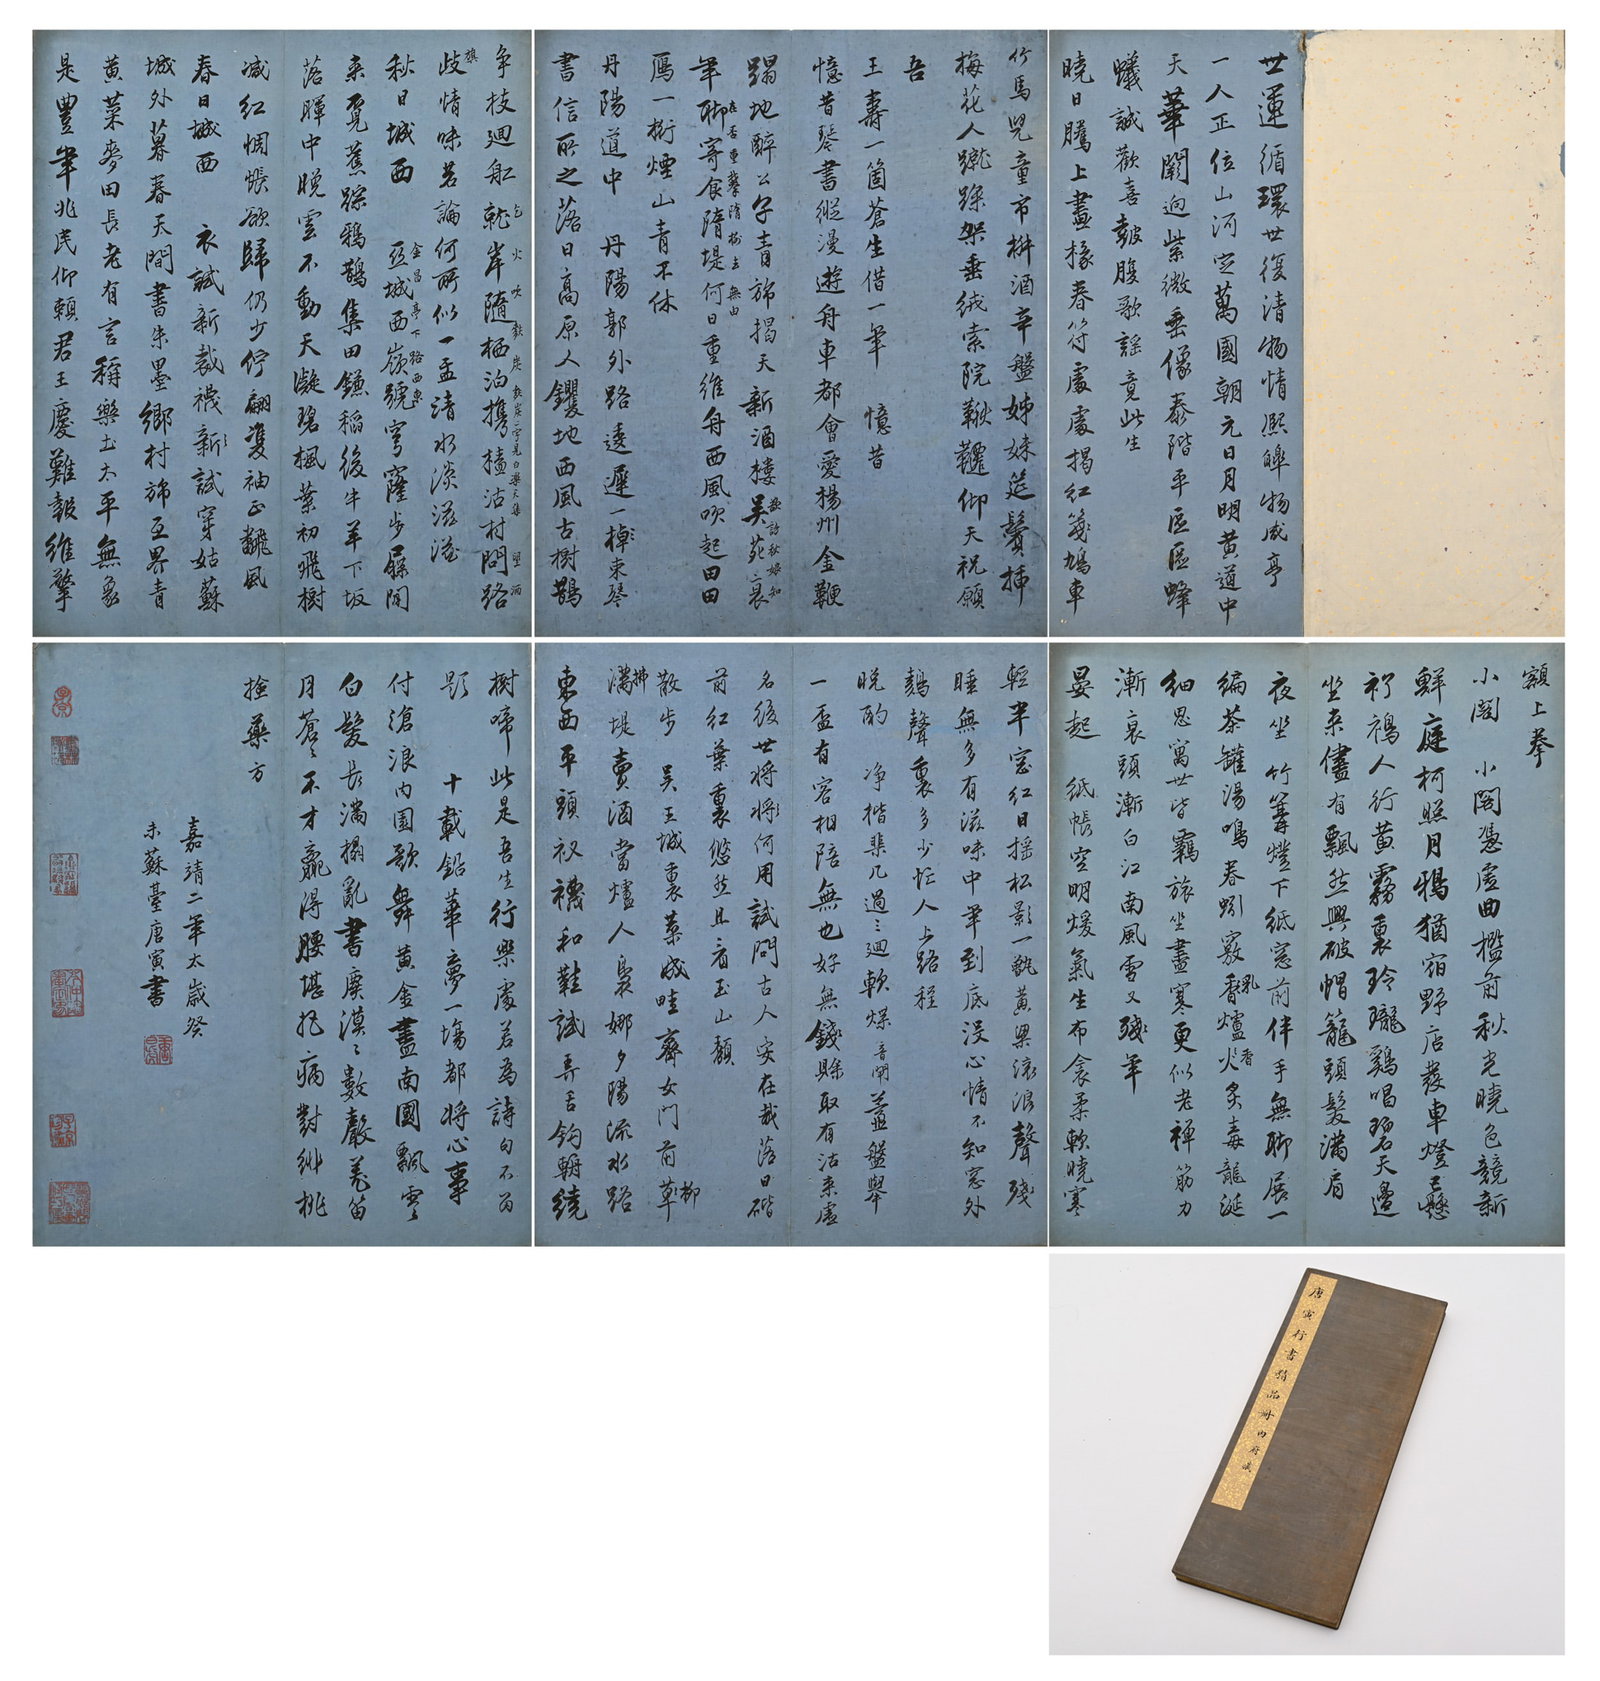 世運循環世復清物情熙皞物咸亨
一人正位山河定萬國朝元日月明黄道中
天華闕迥紫微垂像泰階平區區蜂
蟻誠歡喜鼓腹歌謡竟此生
曉日騰上畫椽春符處處揭紅箋鳩車
竹馬兒童市椒酒辛盤姊妹筵鬢插
梅花人蹴踘架垂絨索院鞦韆仰天祝願
吾
王壽一箇蒼生借一年　憶昔
憶昔琴書縱漫遊舟車都會愛楊州金鞭
蹋地醉公子青旆揭天新酒樓吴苑衰
年聊寄食隋堤何日重維舟西風吹起田田
鴈一行煙山青不休
丹陽道中　丹陽郭外路逶遲一棹東琴
書信所之落日高原人钁地西風古樹鵲
争枝廻舡就岸隨栖泊携榼沽村問路
歧情味若論何所似一盂清水淡滋滋
秋日城西　亞城西嶺號穹窿步屧閒
來覓舊踪鴉鵲集田鎌稻後牛羊下坂
落暉中晚雲不動天凝碧楓葉初飛樹
减紅惆悵欲歸仍少佇翩翻雙袖正飜風
春日城西　衣試新裁襪新試穿姑蘇
城外暮春天間書朱墨鄉村旆互界青
黄菜麥田長老有言稱樂土太平無象
是豐年兆民仰賴君王慶難報維擎
額上拳
小閣　小閣憑虚曲檻前秋光曉色競新
鮮庭柯照月鴉猶宿野店發車燈已懸
袀褐人行黄霧裏玲瓏鷄唱碧天邊
坐来儘有飄然興破帽籠頭髮滿肩
夜坐　竹篝燈下紙窓前伴手無聊展一
編茶罐湯鳴春蚓竅香爐火炙毒龍涎
細思寓世皆羈旅坐盡寒更似老禪筋力
漸衰頭漸白江南風雪又殘年
晏起　紙帳空明煖氣生布衾柔軟曉寒
輕半窓紅日摇松影一甑黄粱滚浪聲殘
睡無多有滋味中年到底没心情不知窓外
鷄聲裏多少忙人上路程
晚酌　净楷棐几過三廻軟煠音閘薑盤舉
一盃有容相陪無也好無錢賒取有沽来虚
名後世將何用試問古人安在哉落日碏
前紅葉裏悠然且看玉山頽
散步　吴王城裏菜成畦齊女門前草
滿堤賣酒當爐人裊娜夕陽流水路
東西平頭衩襪和鞋試弄舌鈎輈繞
樹啼此是吾生行樂處若為詩句不留
題　十載鉛華夢一塲都將心事
付滄浪内園歌舞黄金盡南國飄零
白髮長滿榻亂書塵漠漠數聲羌笛
月蒼蒼不才贏得腰堪把病對緋桃
撿藥方
嘉靖二年太歲癸
未蘇臺唐寅書
唐寅行書精品冊内府藏